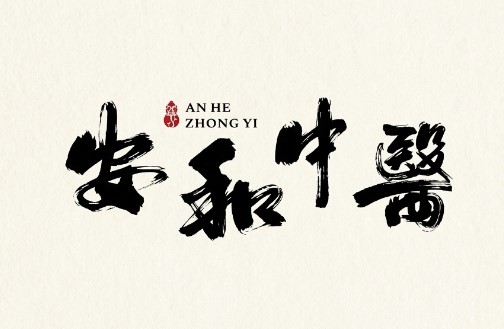 AN HE
ZHONG YI
安和中醫